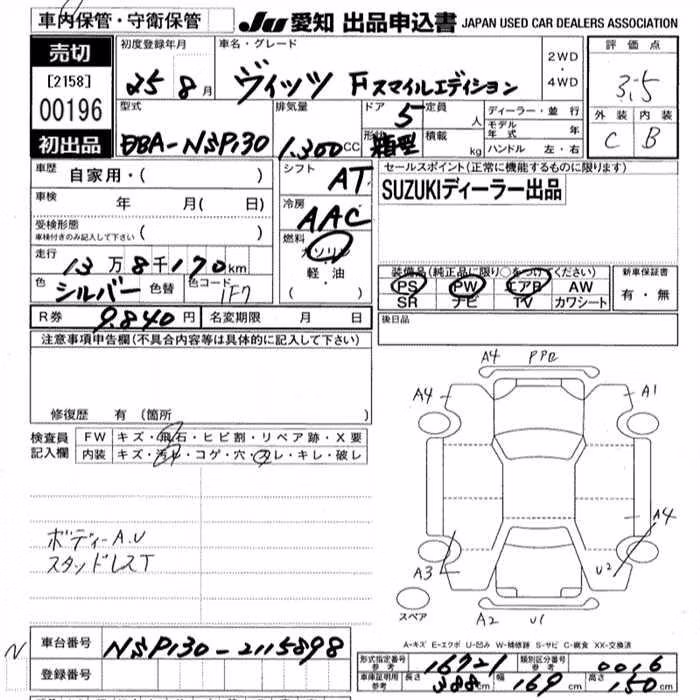 車内保管・守衛保管
JU 愛知 出品申込書 JAPAN USED CAR DEALERS ASSOCIATION
売切
[2158]
00196
初出品
初度登録年月
25 8 月
車名・グレード
ヴィッツ Fスマイルエディション
2WD
・
4WD
評価点
3.5
外装 内装
C B
型式
DBA-NSP130
排気量
1.300CC
ドア 5
形状 箱型
定員 人
積載 kg
ディーラー・並行
モデル年式 年
ハンドル 左・右
車歴
自家用・( )
車検
年 月( 日)
受検形態
車検付きのみ記入して下さい ( )
走行
13万8千170km
色 シルバー 色替 色コード 1F7
シフト AT
冷房 AAC
燃料
ガソリン
軽・油
( ・ )
セールスポイント(正常に機能するものに限ります)
SUZUKIディーラー出品
装備品(純正品に限り○をつけてください)
PS PW エアB AW
SR ナビ TV カワシート
新車保証書
有・無
R券 9.840円 名変期限 月 日
後日品
注意事項申告欄(不具合内容等は具体的に記入して下さい)
修復歴 有(箇所 )
検査員
記入欄
FW キズ・飛石・ヒビ割・リペア跡・X要
内装 キズ・汚レ・コゲ・穴・スレ・キレ・破レ
ボディーA.U
スタッドレスT
A4 PPB
A4 A1
A4
A3 U2
スペア
A2 U1
A-キズ E-エクボ U-凹み W-補修跡 S-サビ C-腐食 XX-交換済
N
車台番号 NSP130-2115898
登録番号
形式指定番号 参考 16721
類別区分番号 参考 0016
車庫証明用 参考 長さ 388cm 幅 169cm 高さ 150cm